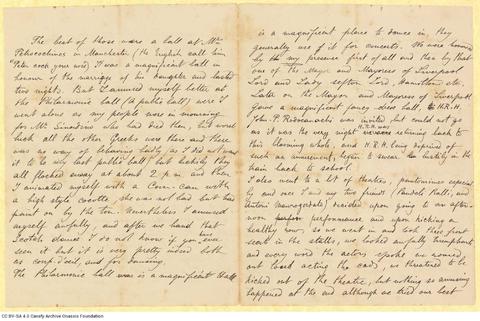 The best of those were a ball at Mr
Petrocochinos in Manchester (the English call him
"Peter cock your nose). It was a magnificent ball in
honour of the marriage of his daughter and lasted
two nights. But I amused myself better at
the Philarmonic ball (A public ball) were I
went alone as my people were in mourning
for Mr who had died then, but never
all the other Greeks were there and there
was no way of behaving badly as I did not wish
it to be my last public ball but luckily they
all flocked away at about 2 p.m. and then
I animated myself with a Can-Can with
a high style cocotte, she was not bad but had
paint on by the ton. Nevertheless I amused
myself awfully, and after we had that
Scotch dance: I do not know if you ever
seen it but it is very pretty indeed both
as coup d'oeil, and for dancing.
The Philarmonic hall were is a magnificent Hall
is a magnificent place to dance in, they
generally use it for concerts. We were honored
by the my presence first of all and then by that
one of the Mayor and Mayoress of Liverpool
Lord and Lady Sefton, Lord Hamilton etc.
Later on the Mayor and Mayoress of Liverpool
gave a magnificent fancy-dress ball, to H.R.H.
John P. Rodocanachi was invited but could not go
as it was the very night H.R.H. was returning back to
this charming whole, and H.R.H. being deprived of
such an amusement, began to swear in the
train back to school.
I also went to a lot of theatres, pantomimes especially
and once I and my two friends (Pandeli Ralli, and
) decided upon going to an after-
noon performance and upon kicking a
healthy row. so we went in and took three front
seats in the stalls, we looked awfully triumphant
and every word the actors spoke we roared
out loud acting the cads, we threatened to be
kicked out of the theatre, but nothing so amusing
happened at the end although we tried our best
CC BY-SA 4.0 Cavafy Archive Onassis Foundation